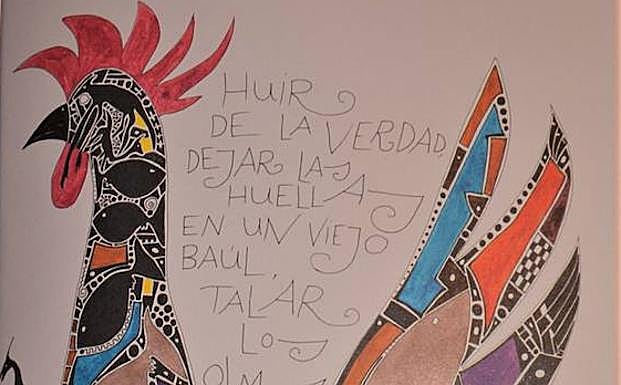 HUIR
DE LA VERDAD,
DEJAR LAS
HUELLAS
EN UN VIEJO
BAÚL,
TALAR
LOS
OLM